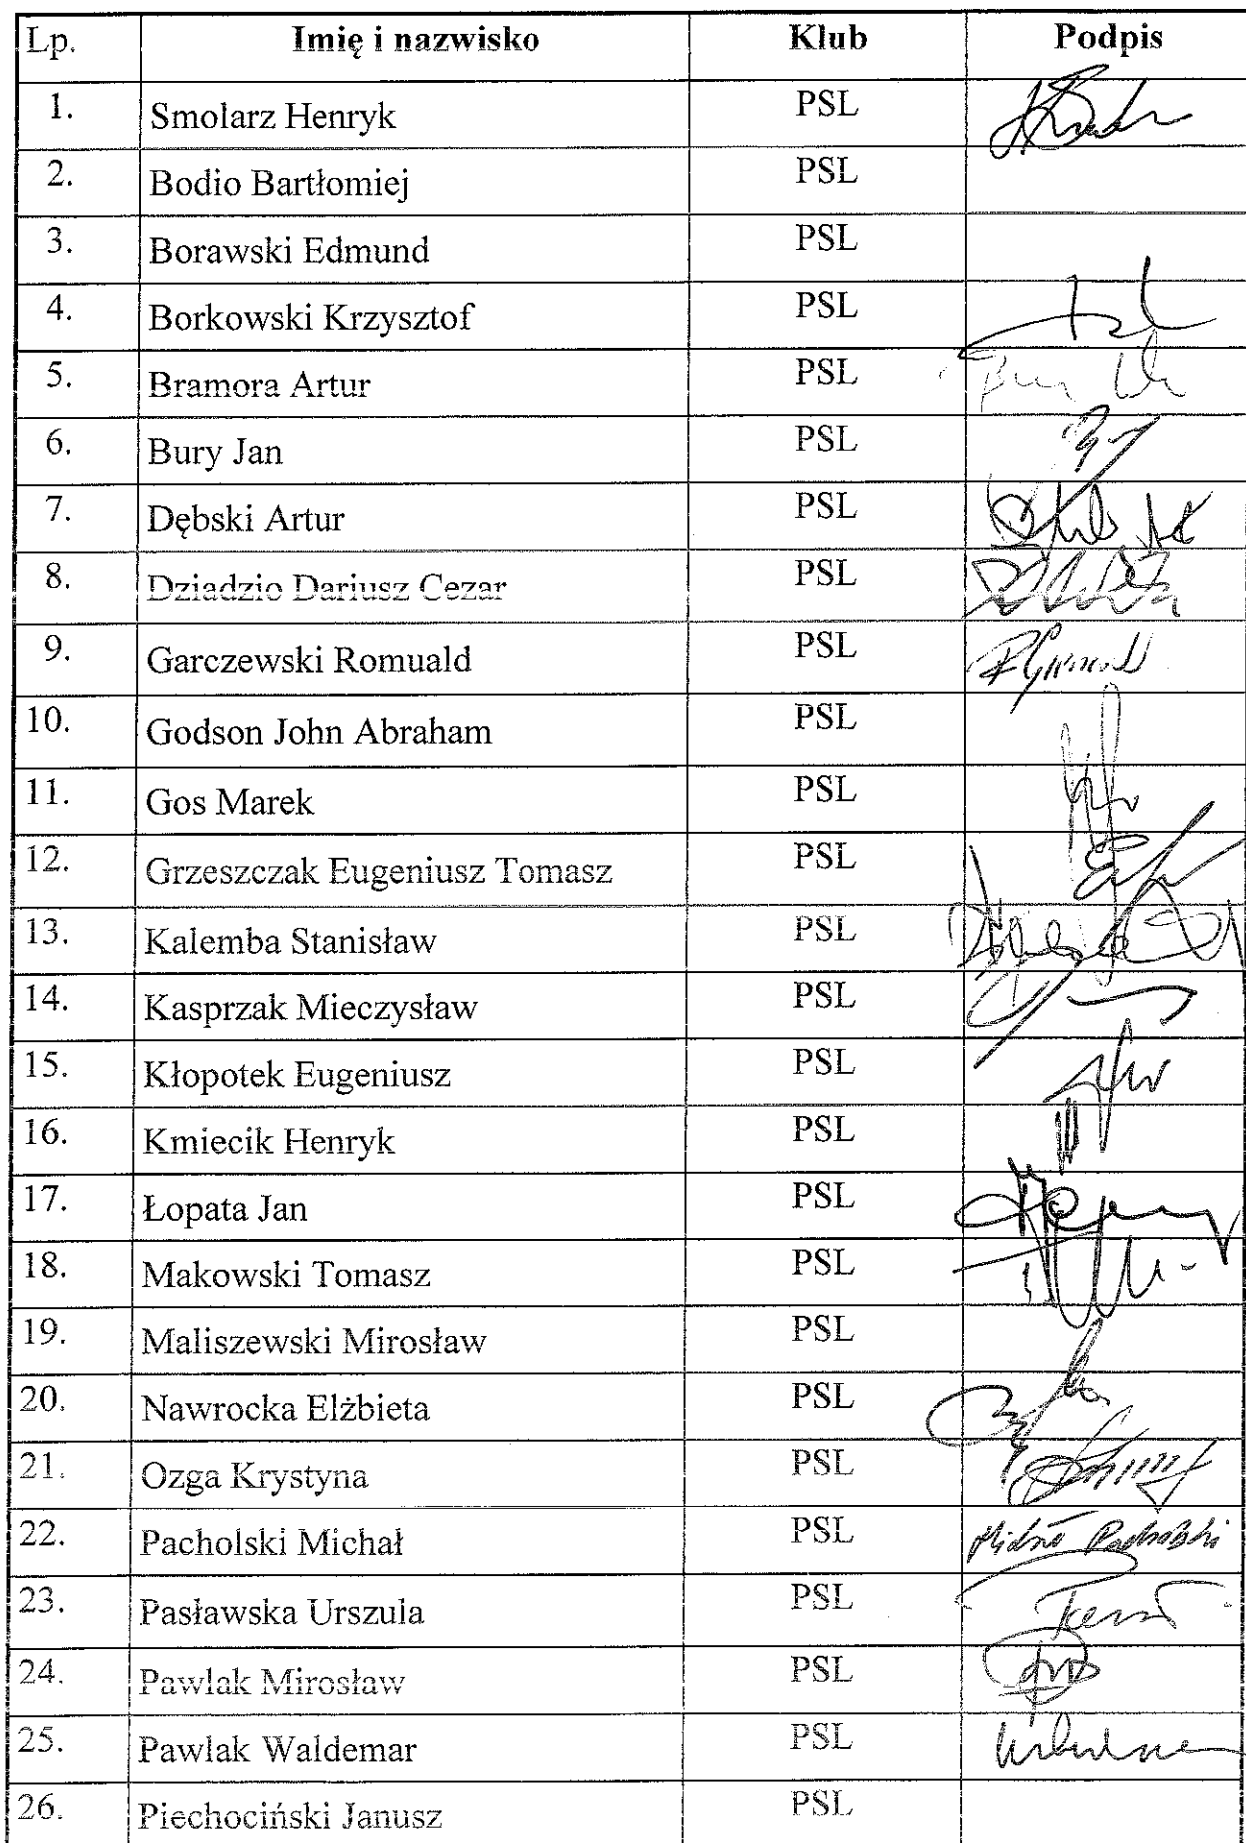 Lp. Imię i nazwisko Klub Podpis
1. Smolarz Henryk PSL
2. Bodio Bartłomiej PSL
3. Borawski Edmund PSL
4. Borkowski Krzysztof PSL
5. Bramora Artur PSL
6. Bury Jan PSL
7. Dębski Artur PSL
8. Dziadzio Dariusz Cezar PSL
9. Garczewski Romuald PSL
10. Godson John Abraham PSL
11. Gos Marek PSL
12. Grzeszczak Eugeniusz Tomasz PSL
13. Kalemba Stanisław PSL
14. Kasprzak Mieczysław PSL
15. Kłopotek Eugeniusz PSL
16. Kmiecik Henryk PSL
17. Łopata Jan PSL
18. Makowski Tomasz PSL
19. Maliszewski Mirosław PSL
20. Nawrocka Elżbieta PSL
21. Ozga Krystyna PSL
22. Pacholski Michał PSL Michał Pacholski
23. Pasławska Urszula PSL
24. Pawlak Mirosław PSL
25. Pawlak Waldemar PSL
26. Piechociński Janusz PSL